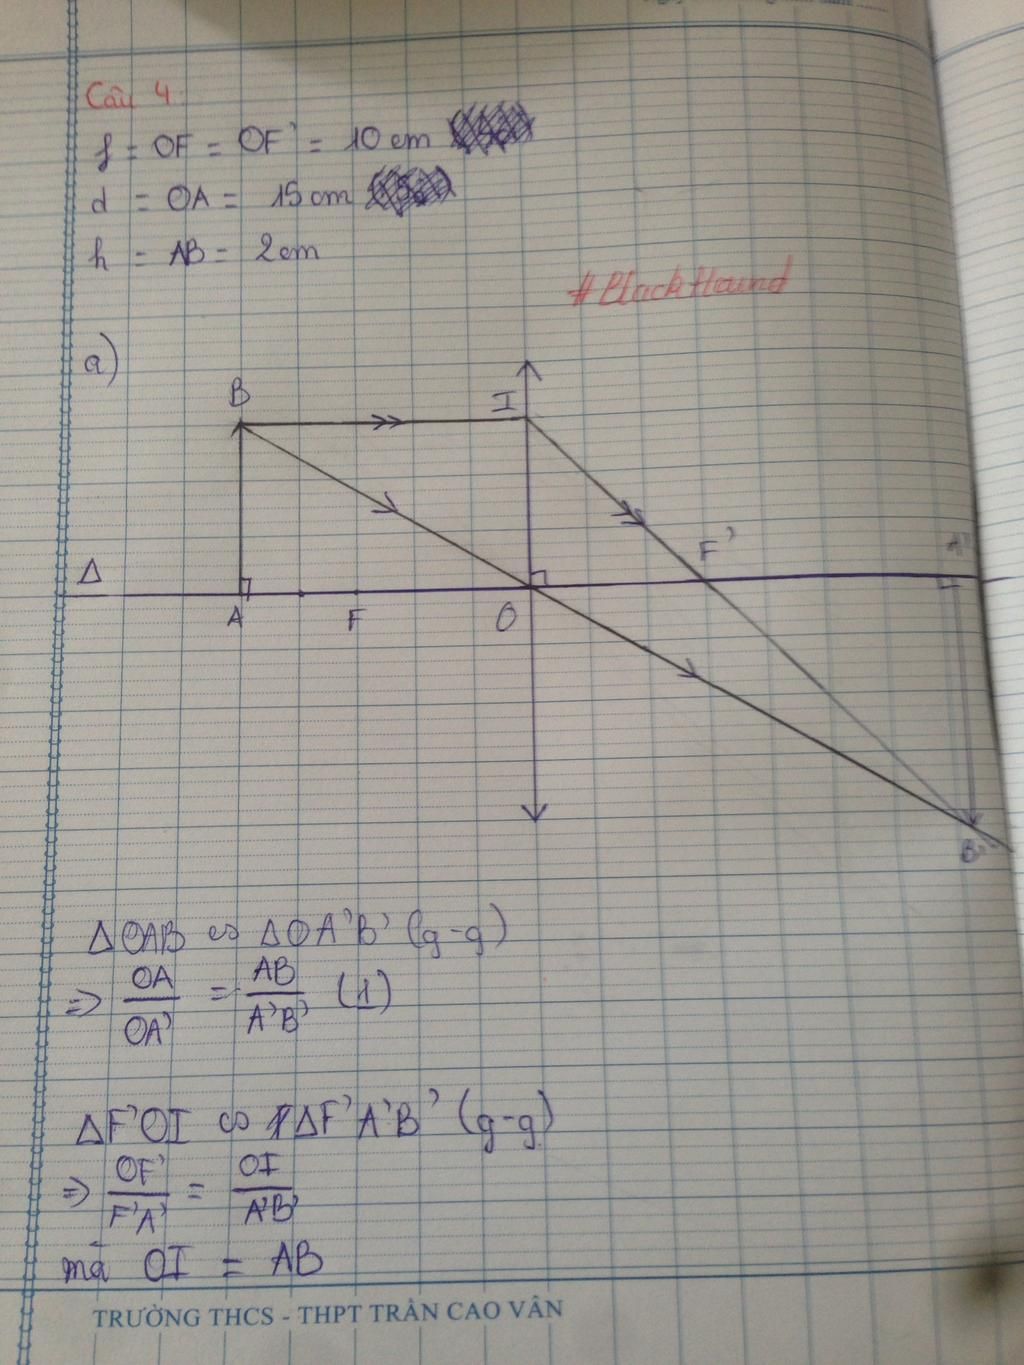 Câu 4
f = OF = OF' = 10 cm
d = OA = 15 cm
h = AB = 2 cm
#BlackHound
a)
B
I
F'
A'
Δ
A
F
O
B'
ΔOAB ∽ ΔOA'B' (g-g)
=> OA/OA' = AB/A'B' (1)
ΔF'OI ∽ ΔF'A'B' (g-g)
=> OF'/F'A' = OI/A'B'
mà OI = AB
TRƯỜNG THCS - THPT TRẦN CAO VÂN